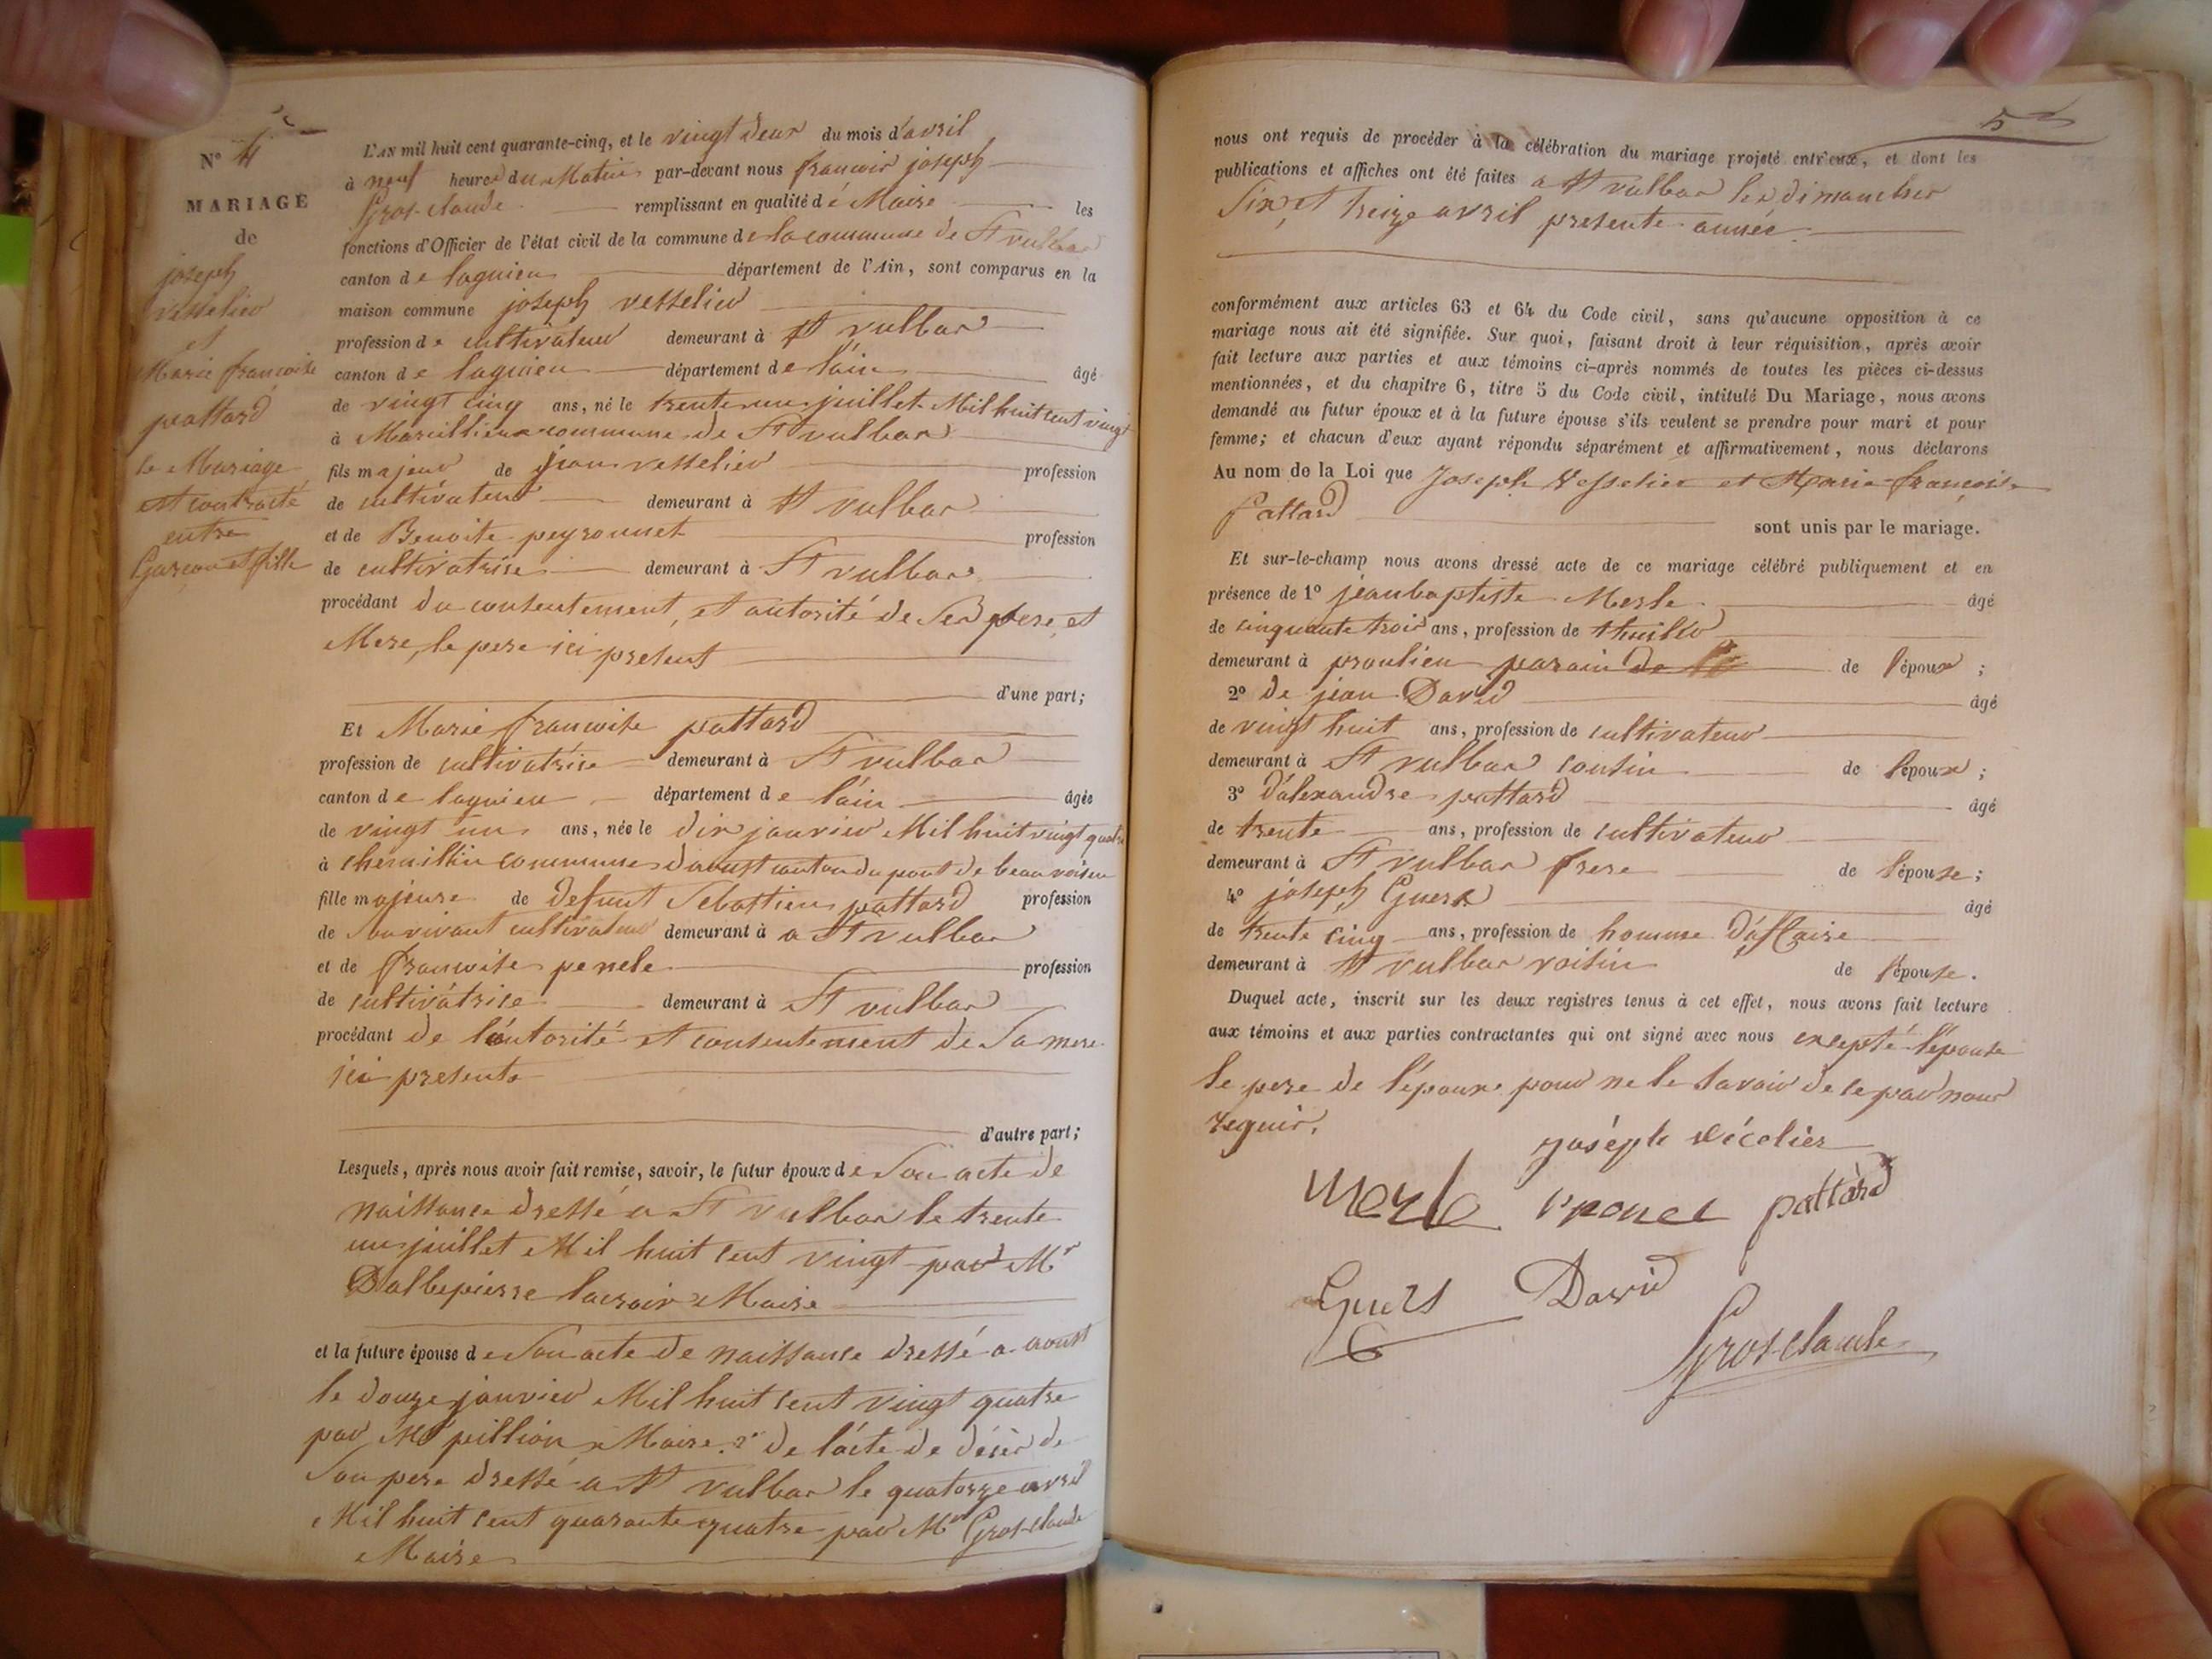 N° 4
MARIAGE
de
joseph
vesselier
et
Marie francoise
pattard
le Mariage
est contracté
entre
Garçon et fille
L'AN mil huit cent quarante-cinq, et le vingt deux du mois d'avril
à neuf heures du Matin par-devant nous francois joseph
Gros-claude remplissant en qualité dé Maire les
fonctions d'Officier de l'état civil de la commune de la commune de St vulbas
canton de lagnieu département de l'Ain, sont comparus en la
maison commune joseph vesselier
profession de cultivateur demeurant à St vulbas
canton de lagnieu département de l'ain âgé
de vingt cinq ans, né le trente un juillet Mil huit cent vingt
à Marcillieux commune de St vulbas
fils majeur de jean vesselier profession
de cultivateur demeurant à St vulbas
et de Benoite peyronnet profession
de cultivatrice demeurant à St vulbas
procédant du consentement, et autorité de Ses pere, et
Mere, le pere ici present
d'une part;
Et Marie francoise pattard
profession de cultivatrice demeurant à St vulbas
canton de lagnieu département de l'ain âgée
de vingt un ans, née le dix janvier Mil huit vingt quatre
à chemillin commune d'aoust canton du pont de beauvoisin
fille majeure de defunt Sebastien pattard profession
de Son vivant cultivateur demeurant à a St vulbas
et de francoise penele profession
de cultivatrice demeurant à St vulbas
procédant de l'autorité et consentement de Sa mere
ici presente
d'autre part;
Lesquels, après nous avoir fait remise, savoir, le futur époux de Son acte de
naissance dressé a St vulbas le trente
un juillet Mil huit cent vingt par Mr
Dallepierre lacroix Maire
et la future épouse de Son acte de naissance dressé a aoust
le douze janvier Mil huit cent vingt quatre
par Mr pillion Maire. 2° de l'acte de décès de
Son pere dressé a St vulbas le quatorze avril
Mil huit cent quarante quatre par Mr Gros-claude
Maire
5
nous ont requis de procéder à la célébration du mariage projeté entr'eux, et dont les
publications et affiches ont été faites a St vulbas les dimanches
Six, et treize avril presente année
conformément aux articles 63 et 64 du Code civil, sans qu'aucune opposition à ce
mariage nous ait été signifiée. Sur quoi, faisant droit à leur réquisition, après avoir
fait lecture aux parties et aux témoins ci-après nommés de toutes les pièces ci-dessus
mentionnées, et du chapitre 6, titre 5 du Code civil, intitulé Du Mariage, nous avons
demandé au futur époux et à la future épouse s'ils veulent se prendre pour mari et pour
femme; et chacun d'eux ayant répondu séparément et affirmativement, nous déclarons
Au nom de la Loi que Joseph Vesselier et Marie francoise
Pattard sont unis par le mariage.
Et sur-le-champ nous avons dressé acte de ce mariage célébré publiquement et en
présence de 1° jean baptiste Merle âgé
de cinquante trois ans, profession de thuilier
demeurant à proulieu parain de l'époux;
2° de jean David âgé
de vingt huit ans, profession de cultivateur
demeurant à St vulbas cousin de l'époux;
3° d'alexandre pattard âgé
de trente ans, profession de cultivateur
demeurant à St vulbas frere de l'épouse;
4° joseph Guers âgé
de trente cinq ans, profession de homme d'affaire
demeurant à St vulbas voisin de l'épouse.
Duquel acte, inscrit sur les deux registres tenus à cet effet, nous avons fait lecture
aux témoins et aux parties contractantes qui ont signé avec nous excepté l'épouse
le pere de l'époux pour ne le Savoir de ce par nous
requis.
joséph vécelier
Merle pattard
Guers David
Gros-claude